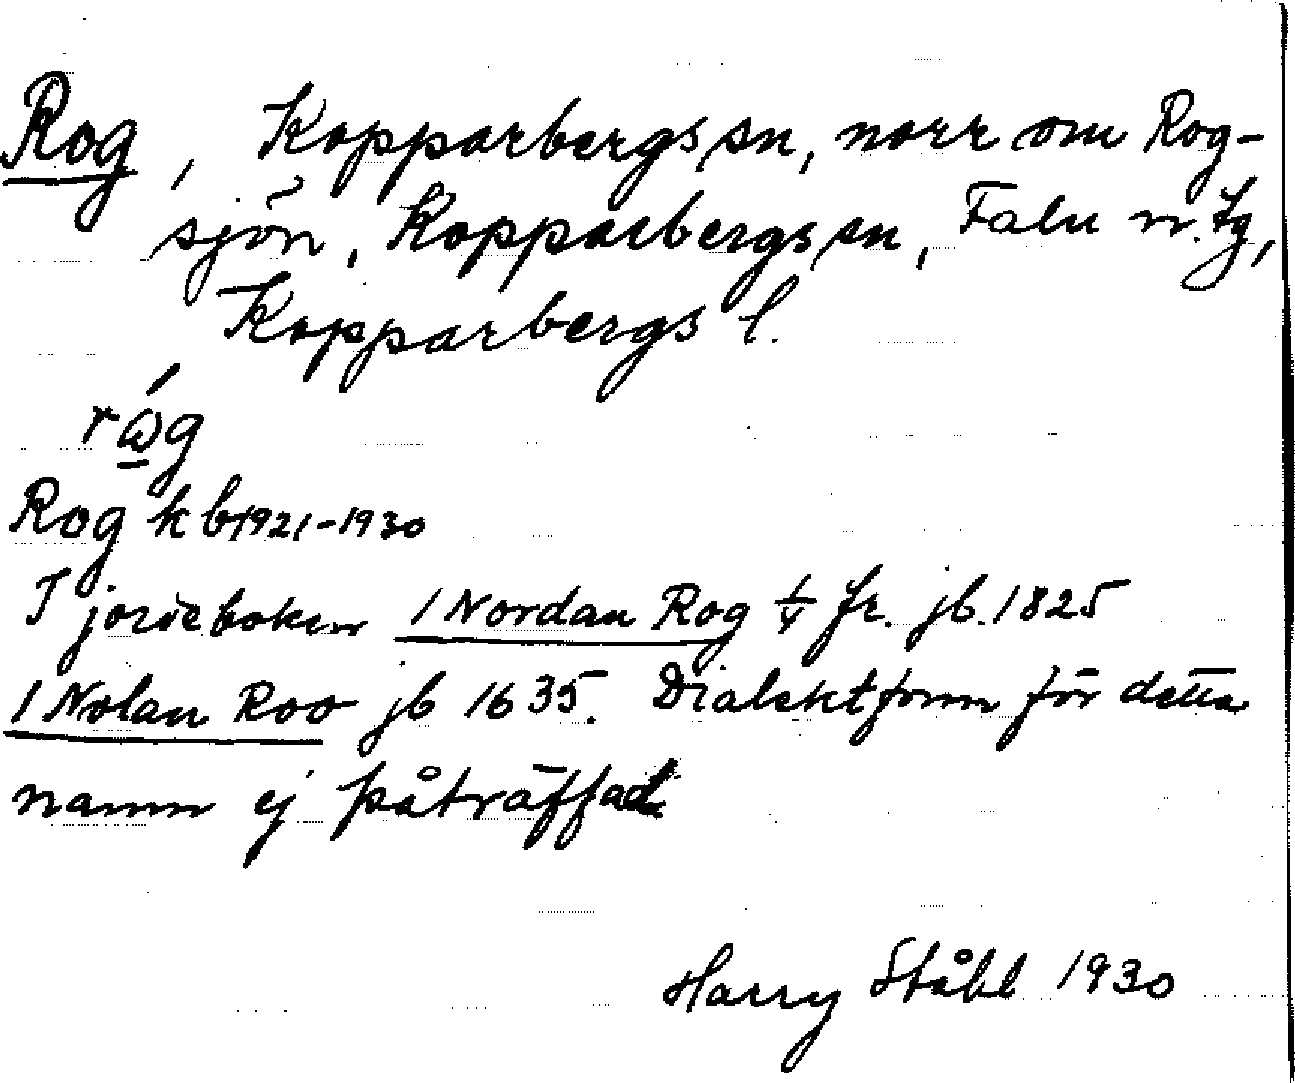 Rog, Kopparbergs sn, norr om Rog-
sjön, Kopparbergs sn, Falu n. tg,
Kopparbergs l.
rώ̲g
Rog kb 1921-1930
I jordeboken 1 Nordan Rog 1/4 fr. jb. 1825
1 Nolan Roo jb 1635. Dialektform för detta
namn ej påträffad
Harry Ståhl 1930